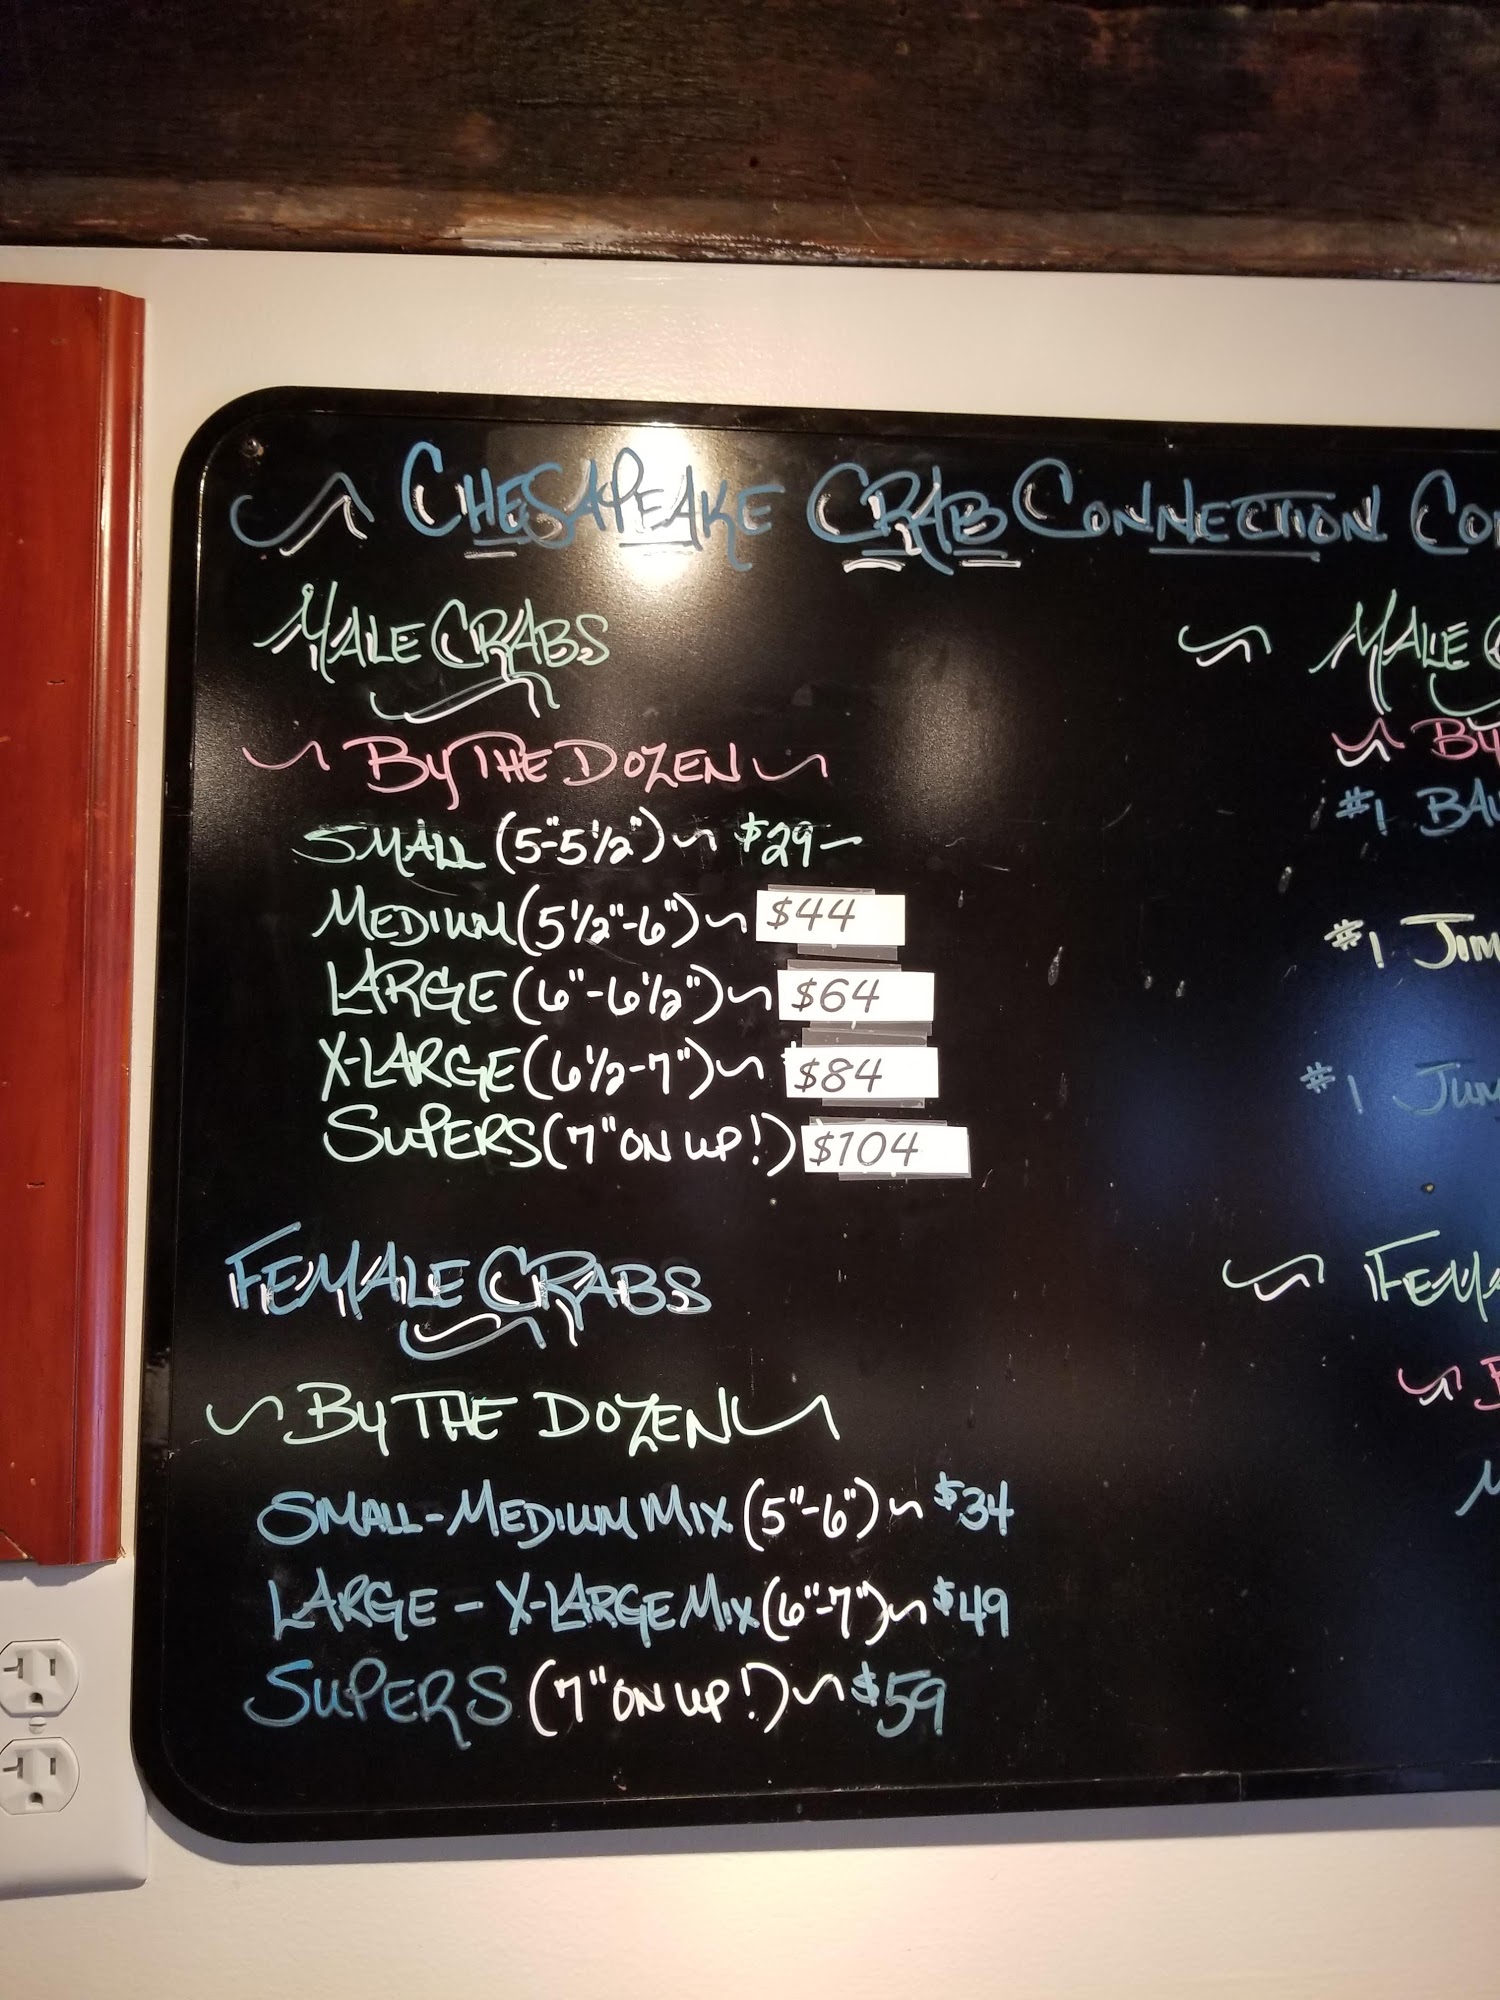 CHESAPEAKE CRAB CONNECTION
MALE CRABS
BY THE DOZEN
SMALL (5"-5½") ~ $29-
MEDIUM (5½"-6") ~ $44
LARGE (6"-6½") ~ $64
X-LARGE (6½-7") ~ $84
SUPERS (7" ON UP!) $104
FEMALE CRABS
~ BY THE DOZEN ~
SMALL-MEDIUM MIX (5"-6") ~ $34
LARGE - X-LARGE MIX (6"-7") ~ $49
SUPERS (7" ON UP!) ~ $59
MALE
#1
#1 JIM
#1